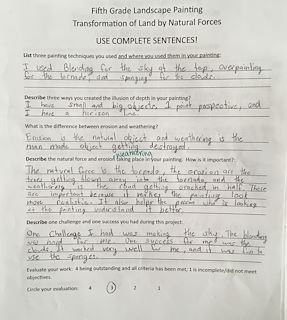 Fifth Grade Landscape Painting
Transformation of Land by Natural Forces
USE COMPLETE SENTENCES!
List three painting techniques you used and where you used them in your painting:
I used Blending for the sky at the top, overpainting
for the tornado, and sponging for the clouds.
Describe three ways you created the illusion of depth in your painting?
I have small and big objects, I paint perspective, and
I have a horizon line.
What is the difference between erosion and weathering?
Erosion is the natural object and weathering is the
man made object getting destroyed.
Describe the natural force and erosion taking place in your painting. How is it important?:
The natural force is the tornado, the erosion are the
trees getting blown away into the tornado, and the
weathering is the road getting cracked in half. These
are important because it makes the painting look
more realistic. It also helps the person who is looking
at the painting understand it better.
Describe one challenge and one success you had during this project.
One Challenge I had was making the sky. The blending
was hard for me. One success for me was the
clouds. It worked very well for me, and it was fun to
use the sponges.
Evaluate your work: 4 being outstanding and all criteria has been met; 1 is incomplete/did not meet
objectives.
Circle your evaluation: 4 3 2 1